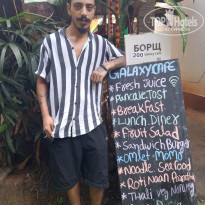 TOPHotels
БОРЩ
200
GALAXY CAFE
*FRESH JUICE
*PANCAKE TOST
*BREAKFAST
*LUNCH DINER
*FRUIT SALAD
*SANDWICH BURGER
*OMLET MOMO
*NOODLE SEAFOOD
*ROTI NAAN
*THALI VEG